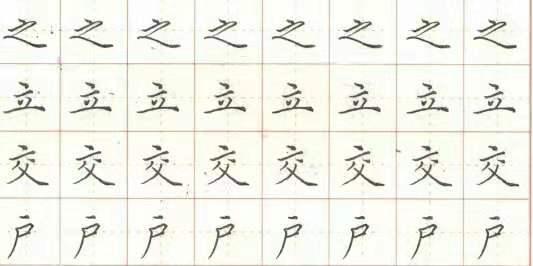 之之之之之之之之
立立立立立立立立
交交交交交交交交
户户户户户户户户